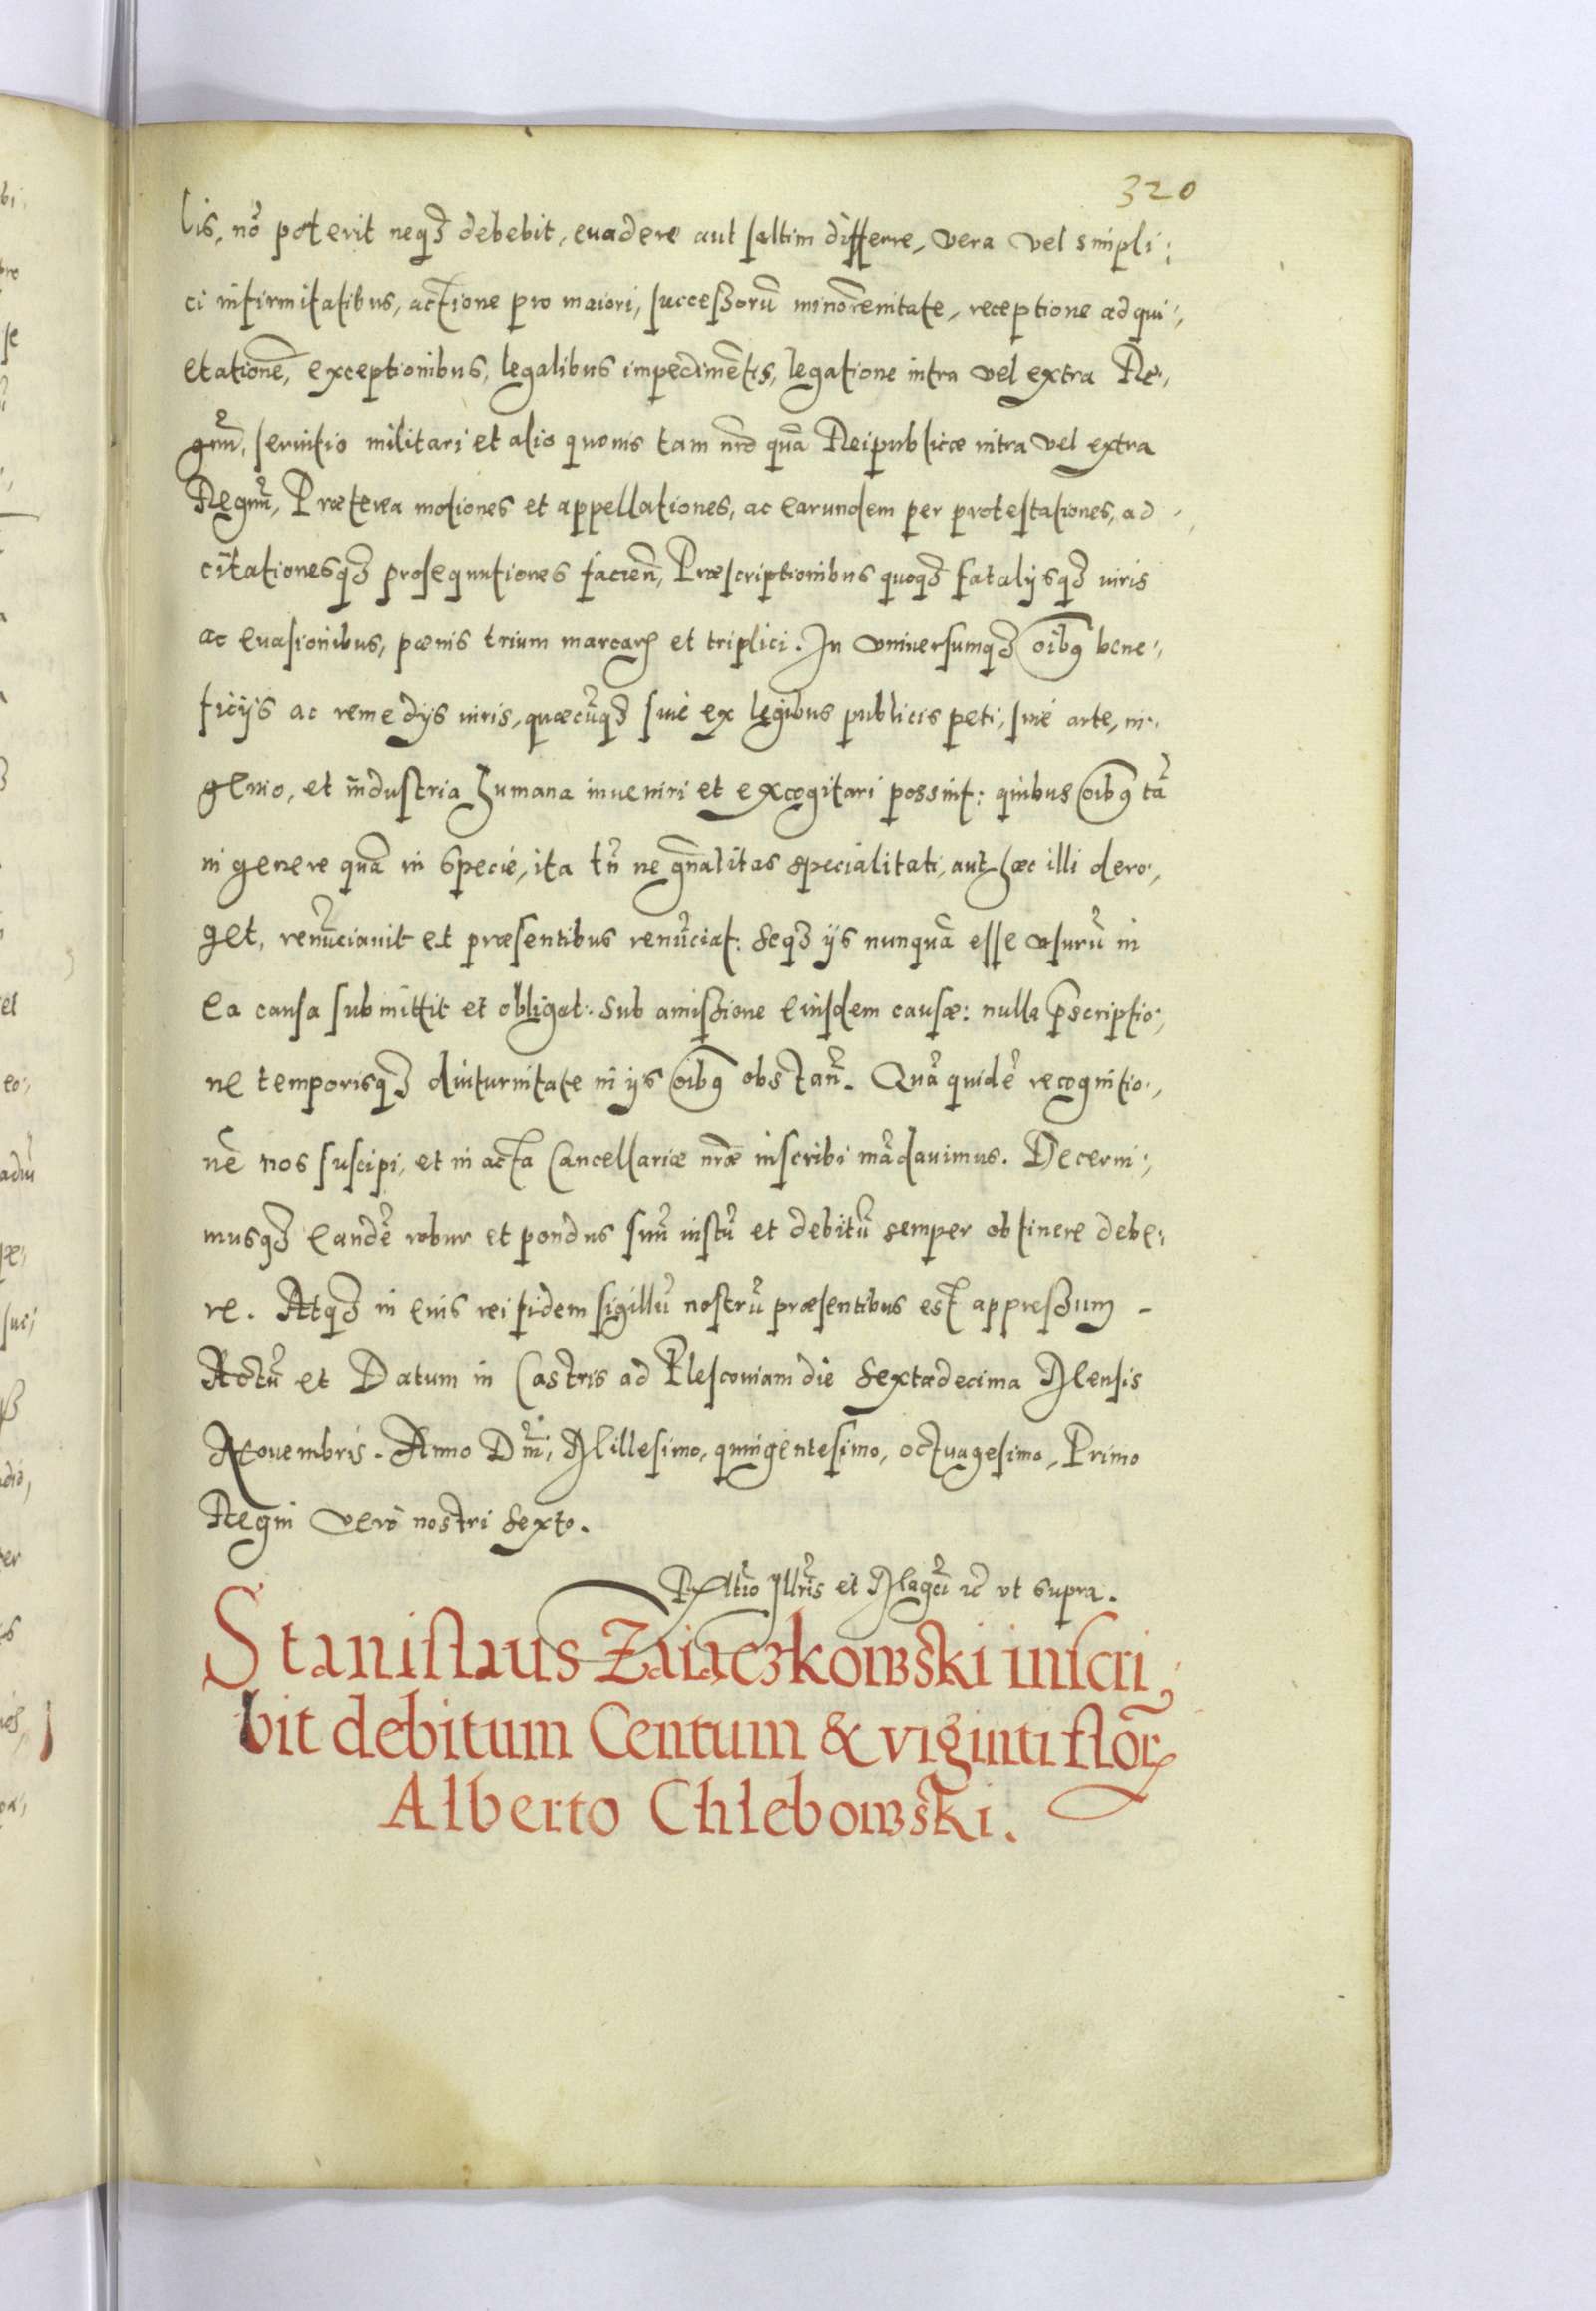 320
lis, nõ poterit neqꝫ debebit, euadere aut saltim differre, vera vel simpli:
ci infirmitatibus, actione pro maiori, successorũ minorennitate, receptione ad qui:,
etationẽ, exceptionibus, legalibus impedimẽtis, legatione intra vel extra Re:,
gnũ, seruitio militari et alio quouis tam nr̃o quã Reipublicæ intra vel extra
Regnũ, Præterea motiones et appellationes, ac earundem per protestationes, ad
citationesqꝫ prosequutiones facień, Præscriptionibus quoqꝫ fatalijsqꝫ iuris
ac euasionibus, pœnis trium marcarꝝ et triplici. In vniuersumqꝫ oĩbꝯ bene:,
ficijs ac remedijs iuris, quæcũqꝫ siue ex legibus publicis peti, siue arte, in:,
genio, et industria humana inueniri et excogitari possint: quibus oĩbꝯ tã
in genere quã in specie, ita tñ ne gñalitas specialitati, aut hæc illi dero:,
get, renũciauit et præsentibus renũciat: seqꝫ ijs nunquã esse vsurũ in
ea causa submittit et obligat: sub amissione eiusdem causæ: nulla p̃scriptio:,
ne temporisqꝫ diuturnitate in ijs oĩbꝯ obstañ. Quã quidẽ recognitio:,
nẽ nos suscipi, et in acta Cancellariæ nr̃æ inscribi mãdauimus. Decerni:,
musqꝫ eandẽ robur et pondus suũ iustũ et debitũ semper obtinere debe:
re. Atqꝫ in eius rei fidem sigillũ nostrũ præsentibus est appressum -
Actũ et Datum in Castris ad Plescouiam die Sextadecima Mensis
Nouembris. Anno Dñi, Millesimo, quingentesimo, octuagesimo, Primo
Regni vero nostri sexto.
Rltio Illr̃is et Magci ꝛc̃ vt supra.
Stanislaus Zaiaczkowski inscri,
bit debitum Centum & viginti florꝝ
Alberto Chlebowski.